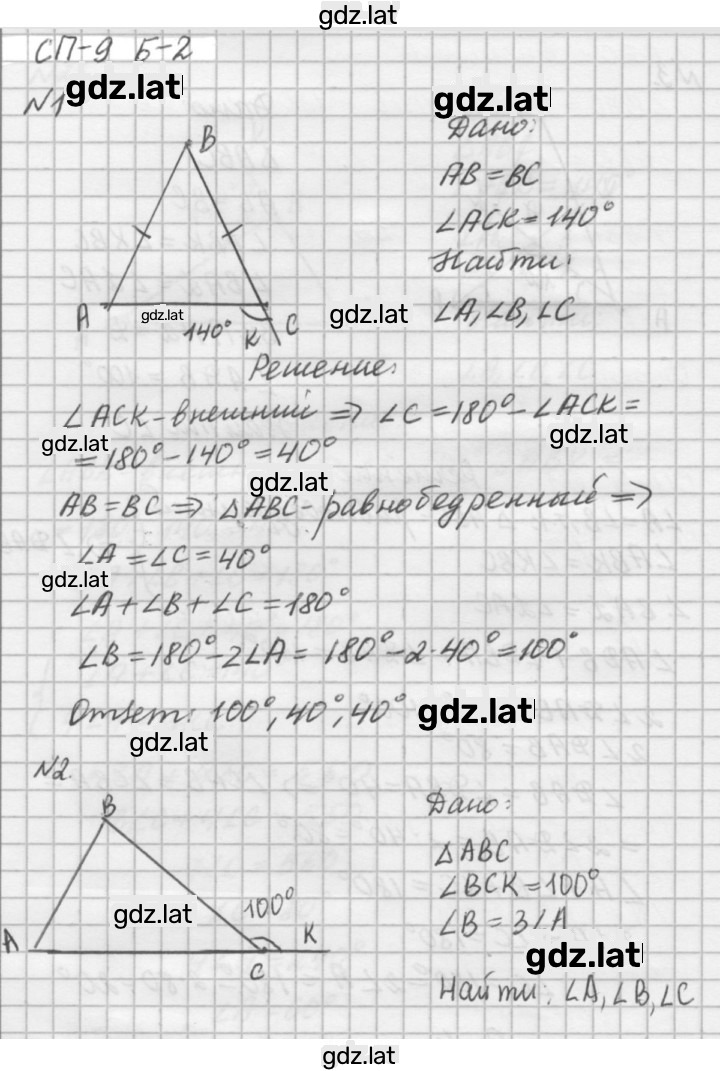 gdz.lat
СП-9 Б-2
№1 gdz.lat
gdz.lat
B
Дано:
AB = BC
∠ACK = 140°
Найти:
∠A, ∠B, ∠C
A gdz.lat C
140° K
gdz.lat
Решение:
∠ACK - внешний ⇒ ∠C = 180° - ∠ACK =
gdz.lat gdz.lat
= 180° - 140° = 40°
gdz.lat
AB = BC ⇒ △ABC - равнобедренный ⇒
∠A = ∠C = 40°
gdz.lat
∠A + ∠B + ∠C = 180°
∠B = 180° - 2∠A = 180° - 2·40° = 100°
Ответ: 100°, 40°, 40° gdz.lat
gdz.lat
№2.
B
Дано:
△ABC
∠BCK = 100°
∠B = 3∠A
gdz.lat
100°
gdz.lat
A C K
Найти: ∠A, ∠B, ∠C
gdz.lat